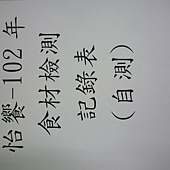 怡饗-102年
食材檢測
記錄表
(自測)